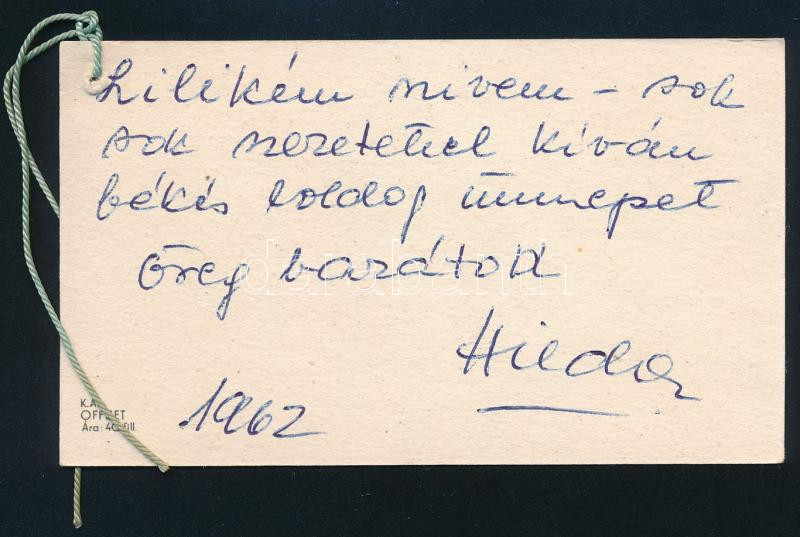 Lilikém szivem – sok
sok szeretettel kíván
békés boldog ünnepet
öreg barátod
Hilda
1962
K.A.
OFFSET
Ára: 40 fill.
darabanth